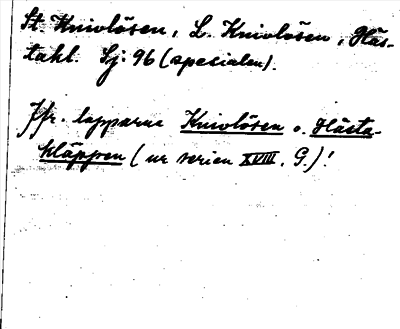 St. Knivlösen, L. Knivlösen, Häs-
takl. Sj: 96 (specialen).
Jfr. lapparna Knivlösen o. Hästa-
kläppen (ur serien XVIII. G.)!